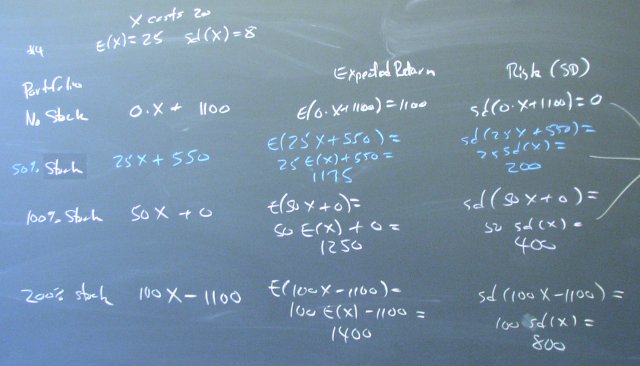 X costs 20
#4 E(X)=25 sd(X)=8
Portfolio Expected Return Risk (SD)
No Stock 0·X + 1100 E(0·X+1100)=1100 sd(0·X+1100)=0
50% Stock 25X + 550 E(25X+550)= sd(25X+550)=
25E(X)+550= 25sd(X)=
1175 200
100% Stock 50X + 0 E(50X+0)= sd(50X+0)=
50 E(X) + 0 = 50 sd(X)=
1250 400
200% stock 100X - 1100 E(100X-1100)= sd(100X-1100)=
100 E(X)-1100 = 100 sd(X)=
1400 800